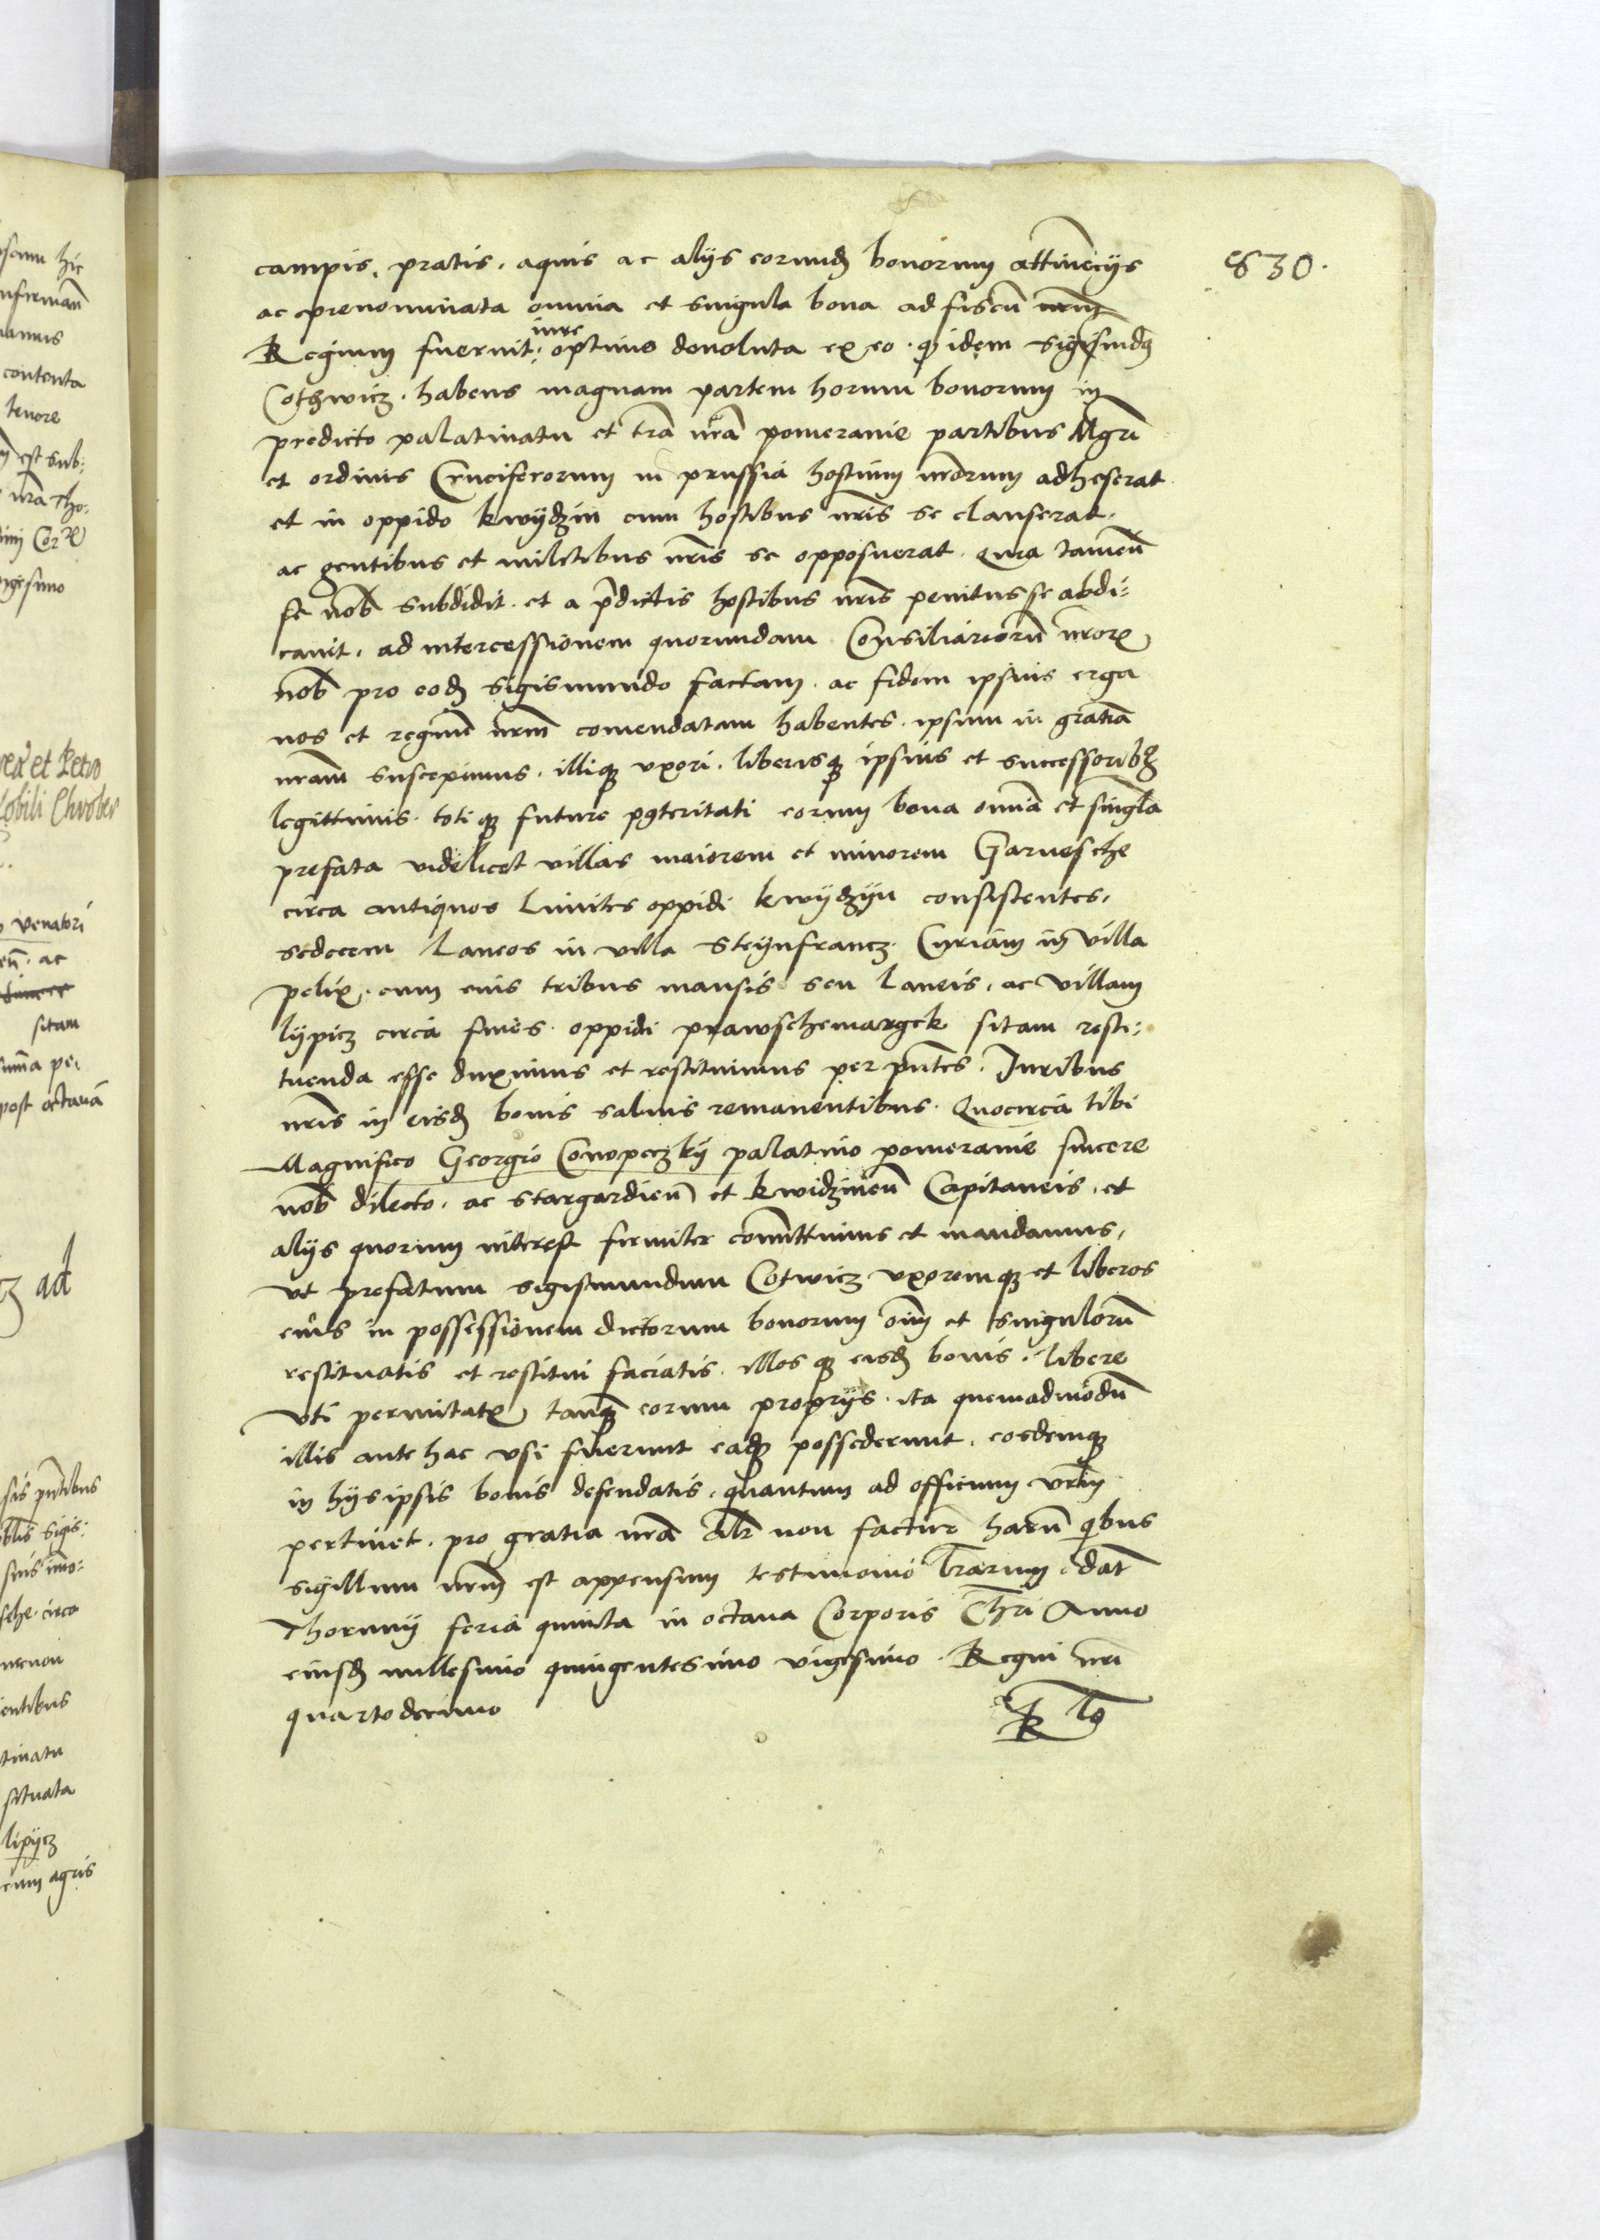 830.
campis, pratis, aquis ac alijs eorundẽ bonorum attinẽcijs
ac prenominata omnia et singula bona ad fiscũ nrũm
Regium fuerint iure optimo devoluta ex eo q idem Sigismdꝰ
Cothwicz habens magnam partem horum bonorum in
predicto palatinatu et trã nrã pomeranie partibus Mgrĩ
et ordinis Cruciferorum in prussia hostium nrõrum adheserat
et in oppido kwydzin cum hostibus nrĩs se clauserat
ac gentibus et militibus nrĩs se opposuerat Quia tamen
se nob̃ subdidit et a p̃dictis hostibus nrĩs penitus se abdi:
cavit, ad intercessionem quorundam Consiliariorũ nrõrꝫ
nob̃ pro eodẽ Sigismundo factam ac fidem ipsius erga
nos et regnũ nrm̃ comendatam habentes ipsum in gratiã
nrãm suscepimus, illiqꝫ uxori liberisqꝫ ipsius et successoribꝫ
legittimis totiqꝫ future posteritati eorum bona omiã et singl̃a
prefata videlicet villas maiorem et minorem Garnesche
circa antiquos Limites oppidi kwydzyn consistentes,
sedecem Laneos in villa Steynfrancz Curiam in villa
pelix cum eius tribus mansis seu Laneis, ac villam
lypicz circa fines oppidi prawschemargck sitam resti:
tuenda esse duximus et restituimus per pñtes. Juribus
nrĩs in eisdẽ bonis salvis remanentibus. Quocirca tibi
Magnifico Georgio Conopeczky palatino pomeranie sincere
nob̃ dilecto, ac Stargardieñ et kwidzineñ Capitaneis, et
alijs quorum interest firmiter com̃ittimus et mandamus,
ut prefatum Sigismundum Cotwicz uxoremqꝫ et liberos
eius in possessionem dictorum bonorum oim̃ et singulorũ
restituatis et restitui faciatis illosqꝫ eisdẽ bonis libere
uti permitatꝭ tanqꝫ eorum proprijs ita quemadmodũ
illis ante hac usi fuerunt eaqꝫ possederunt, eosdemqꝫ
in hijs ipsis bonis defendatis, quantum ad officium vrm̃
pertinet, pro gratia nrã alr̃ non facturi harũ qibus
sigillum nrm̃ est appensum testimonio lr̃arum. dat̃
Thorunij feria quinta in octava Corporis Chrĩ Anno
eiusdẽ millesimo quingentesimo vigesimo Regni nrĩ
quartodecimo